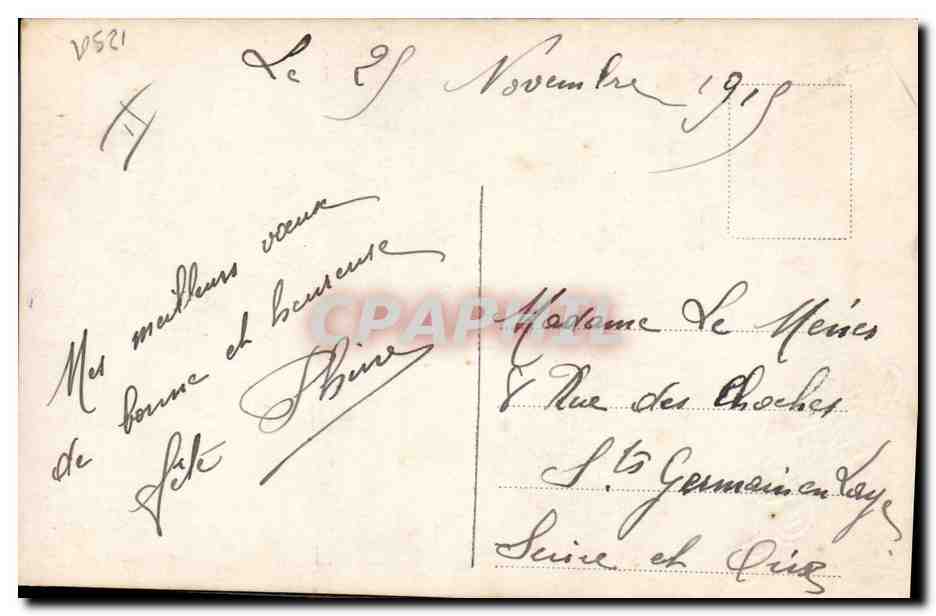 V521
Le 25 Novembre 1915
Mes meilleurs vœux
de bonne et heureuse
fête
CPAPHIL
Madame Le
8 Rue des
St Germain en Laye
Seine et Oise